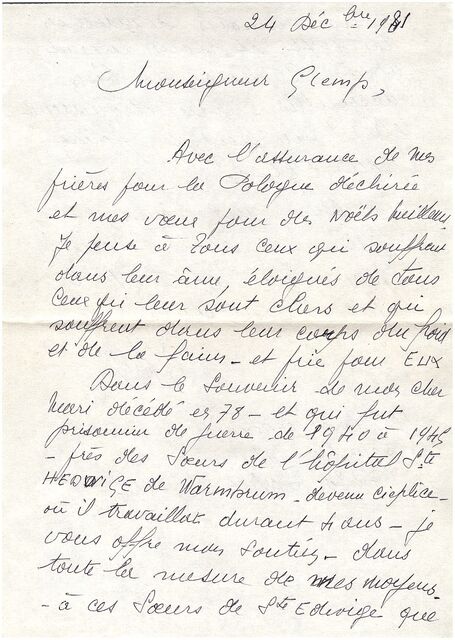 24 Déc bre 1981
Monseigneur Glemp,
Avec l'assurance de mes
prières pour la Pologne déchirée
et mes vœux pour des Noëls meilleurs,
Je pense à Tous ceux qui souffrent
dans leur âme, éloignés de tous
ceux qui leur sont chers et qui
souffrent dans leur corps du froid
et de la faim - et prie pour EUX
Dans le souvenir de mon cher
Mari décédé en 78 - et qui fut
prisonnier de guerre de 1940 à 1945
- près des Sœurs de l'hôpital Ste
HEDWIGE de Warmbrum - devenu cieplice -
où il travailla durant 4 ans - je
vous offre mon soutien - dans
toute la mesure de mes moyens
- à ces Sœurs de Ste Edwige que